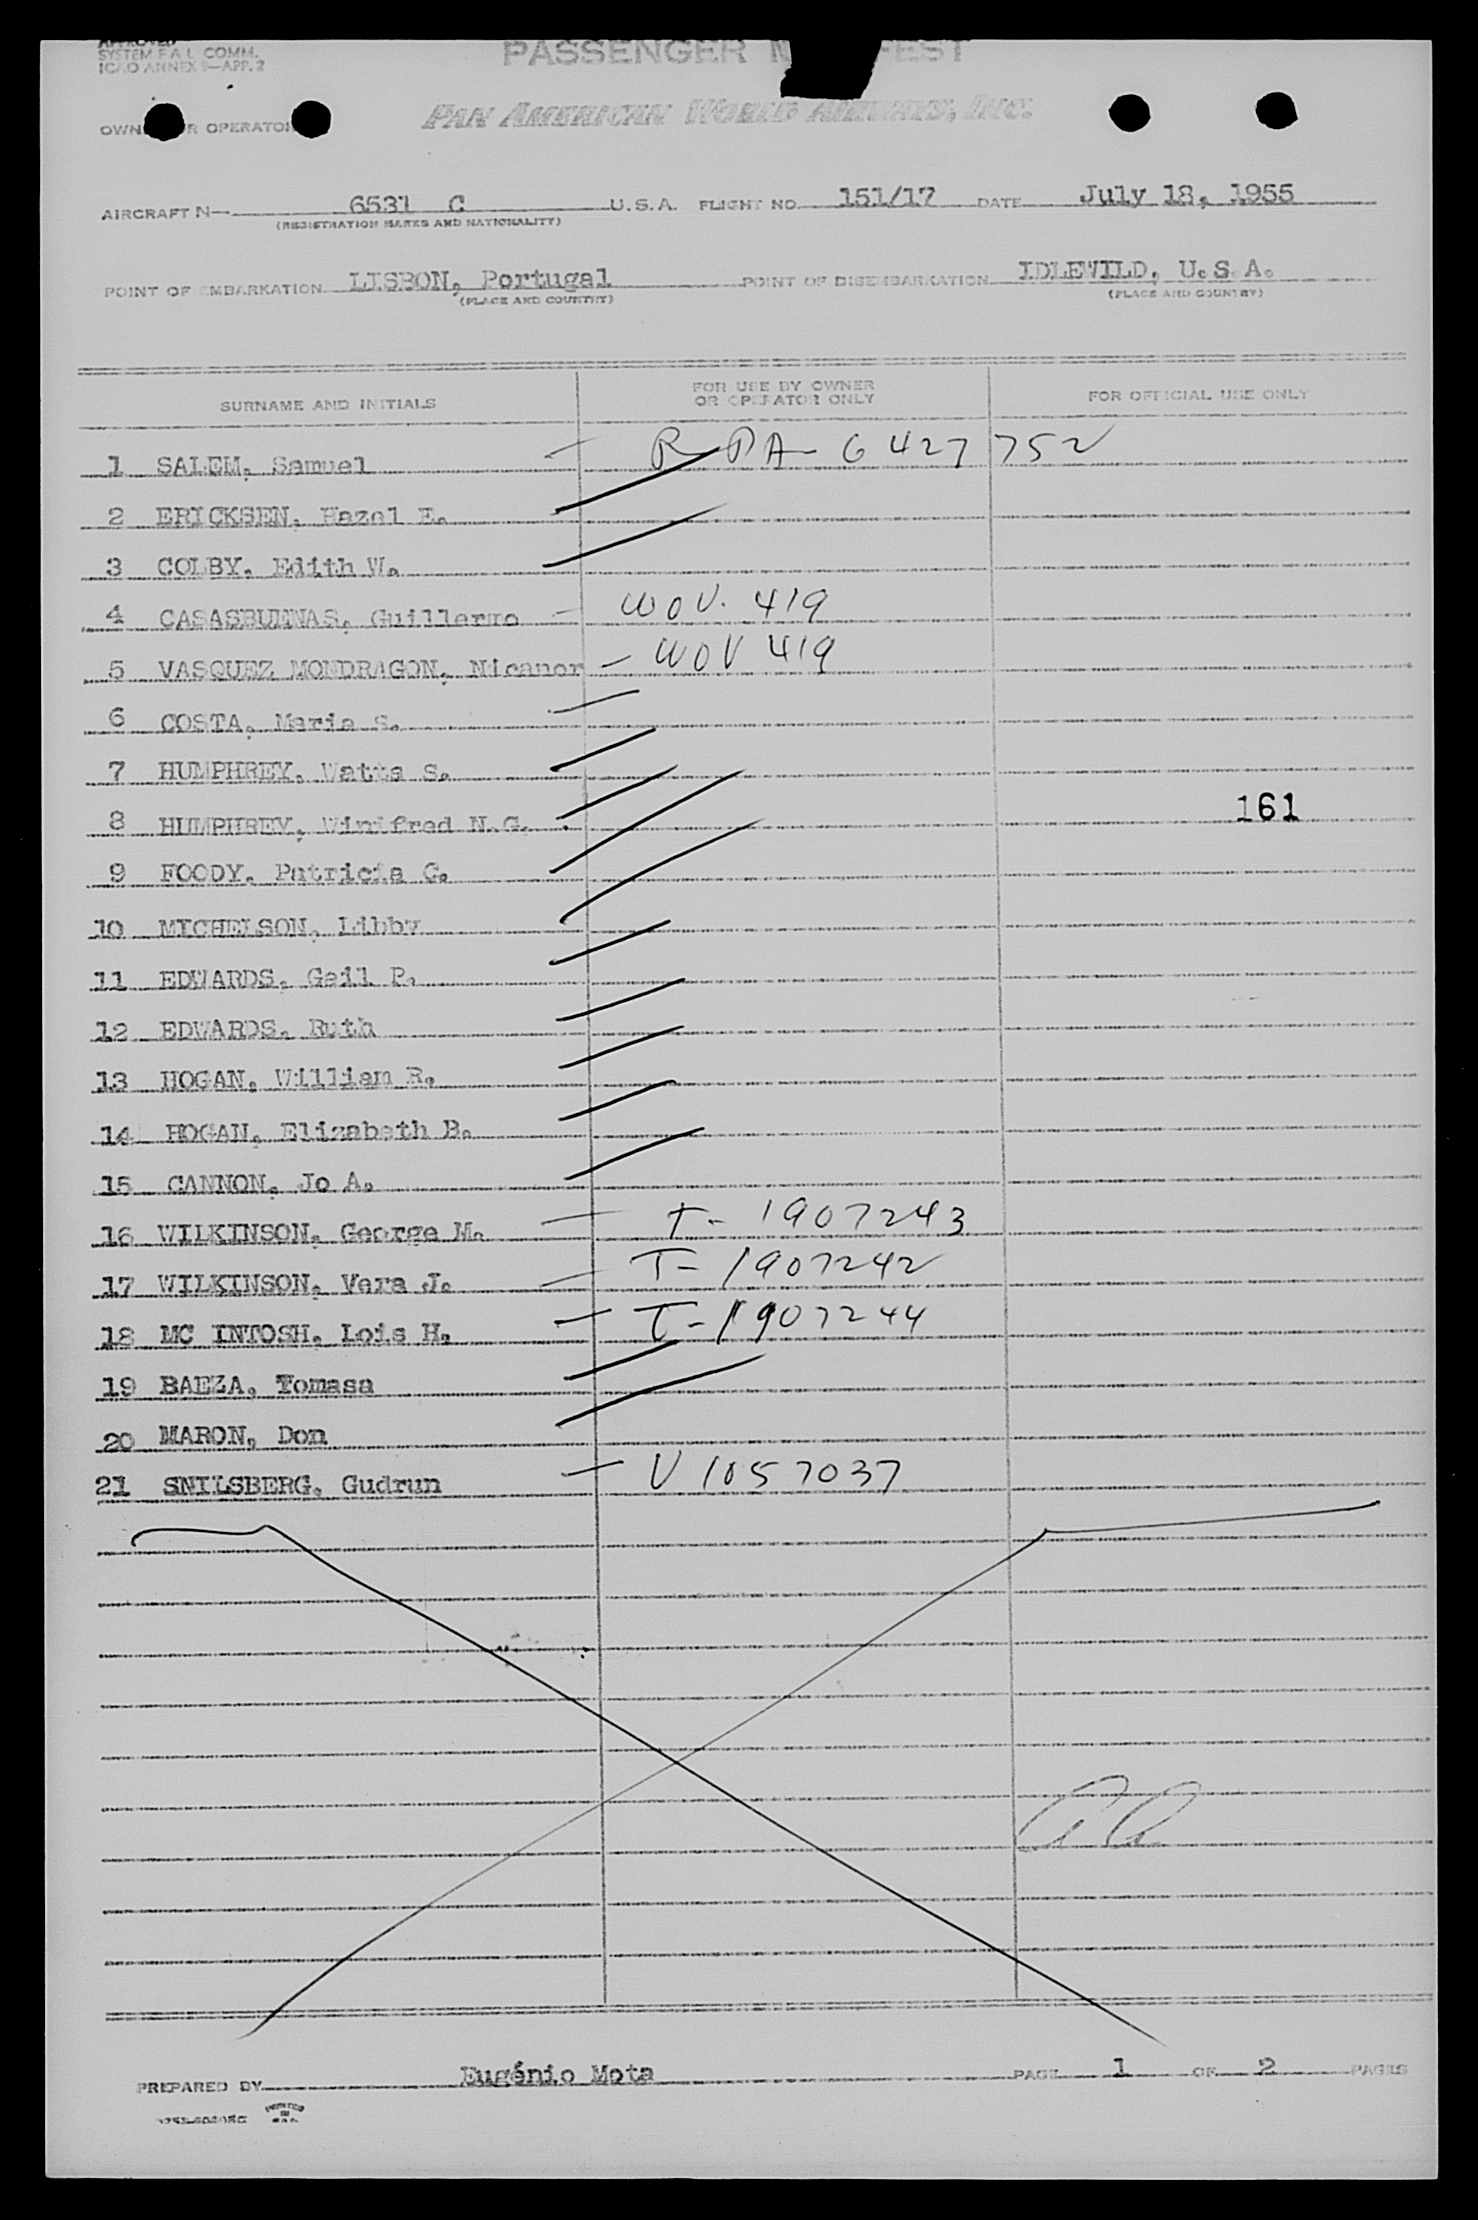 APPROVED
SYSTEM F A L COMM.
ICAO ANNEX 9—APP. 2
PASSENGER M FEST
PAN AMERICAN WORLD AIRWAYS, INC.
OWN R OPERATOR
AIRCRAFT N— 6531 C U.S.A. FLIGHT NO. 151/17 DATE July 18, 1955
(REGISTRATION MARKS AND NATIONALITY)
POINT OF EMBARKATION LISBON, Portugal POINT OF DISEMBARKATION IDLEWILD, U.S.A.
(PLACE AND COUNTRY) (PLACE AND COUNTRY)
SURNAME AND INITIALS FOR USE BY OWNER OR OPERATOR ONLY FOR OFFICIAL USE ONLY
1 SALEM, Samuel — R PA- 6427752
2 ERICKSEN, Hazel E.
3 COLBY, Edith W.
4 CASASBUENAS, Guillermo — WOV. 419
5 VASQUEZ MONDRAGON, Nicanor — WOV 419
6 COSTA, Maria S.
7 HUMPHREY, Watts S.
8 HUMPHREY, Winifred N.G. 161
9 FOODY, Patricia G.
10 MICHELSON, Libby
11 EDWARDS, Gail P.
12 EDWARDS, Ruth
13 HOGAN, William R.
14 HOGAN, Elizabeth B.
15 CANNON, Jo A.
16 WILKINSON, George M. — T- 1907243
17 WILKINSON, Vera J. — T- 1907242
18 MC INTOSH, Lois H. — T- 1907244
19 BAEZA, Tomasa
20 MARON, Don
21 SNILSBERG, Gudrun — V 1057037
PREPARED BY Eugénio Mota PAGE 1 OF 2 PAGES